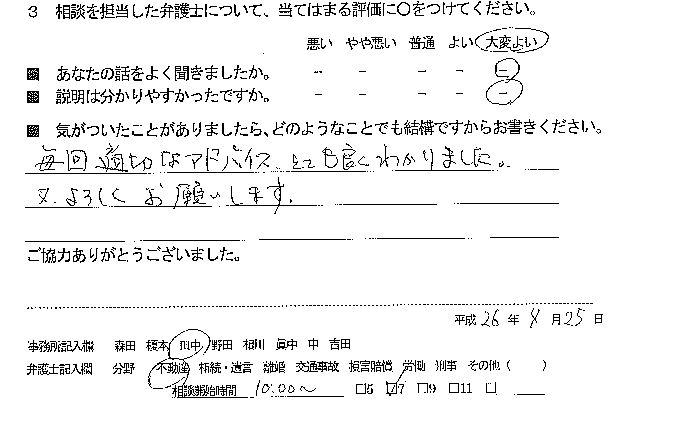 3 相談を担当した弁護士について、当てはまる評価に○をつけてください。
悪い やや悪い 普通 よい 大変よい
■ あなたの話をよく聞きましたか。 － － － － －
■ 説明は分かりやすかったですか。 － － － － －
■ 気がついたことがありましたら、どのようなことでも結構ですからお書きください。
毎回適切なアドバイス、とても良くわかりました。
又、よろしくお願いします。
ご協力ありがとうございました。
平成 26 年 月 25 日
事務所記入欄 森田 榎本 田中 野田 相川 眞中 中 吉田
弁護士記入欄 分野 不動産 相続・遺言 離婚 交通事故 損害賠償 労働 刑事 その他（ ）
相談開始時間 10:00〜 □5 ☑7 □9 □11 □